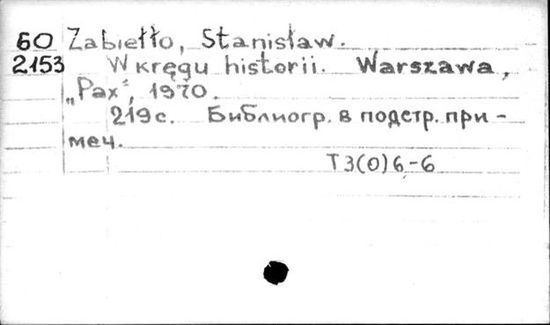 60 Zabiełło, Stanisław.
2153 W kręgu historii. Warszawa,
„Pax", 1970.
219с. Библиогр. в подстр. при-
меч.
Т3(0)6-6